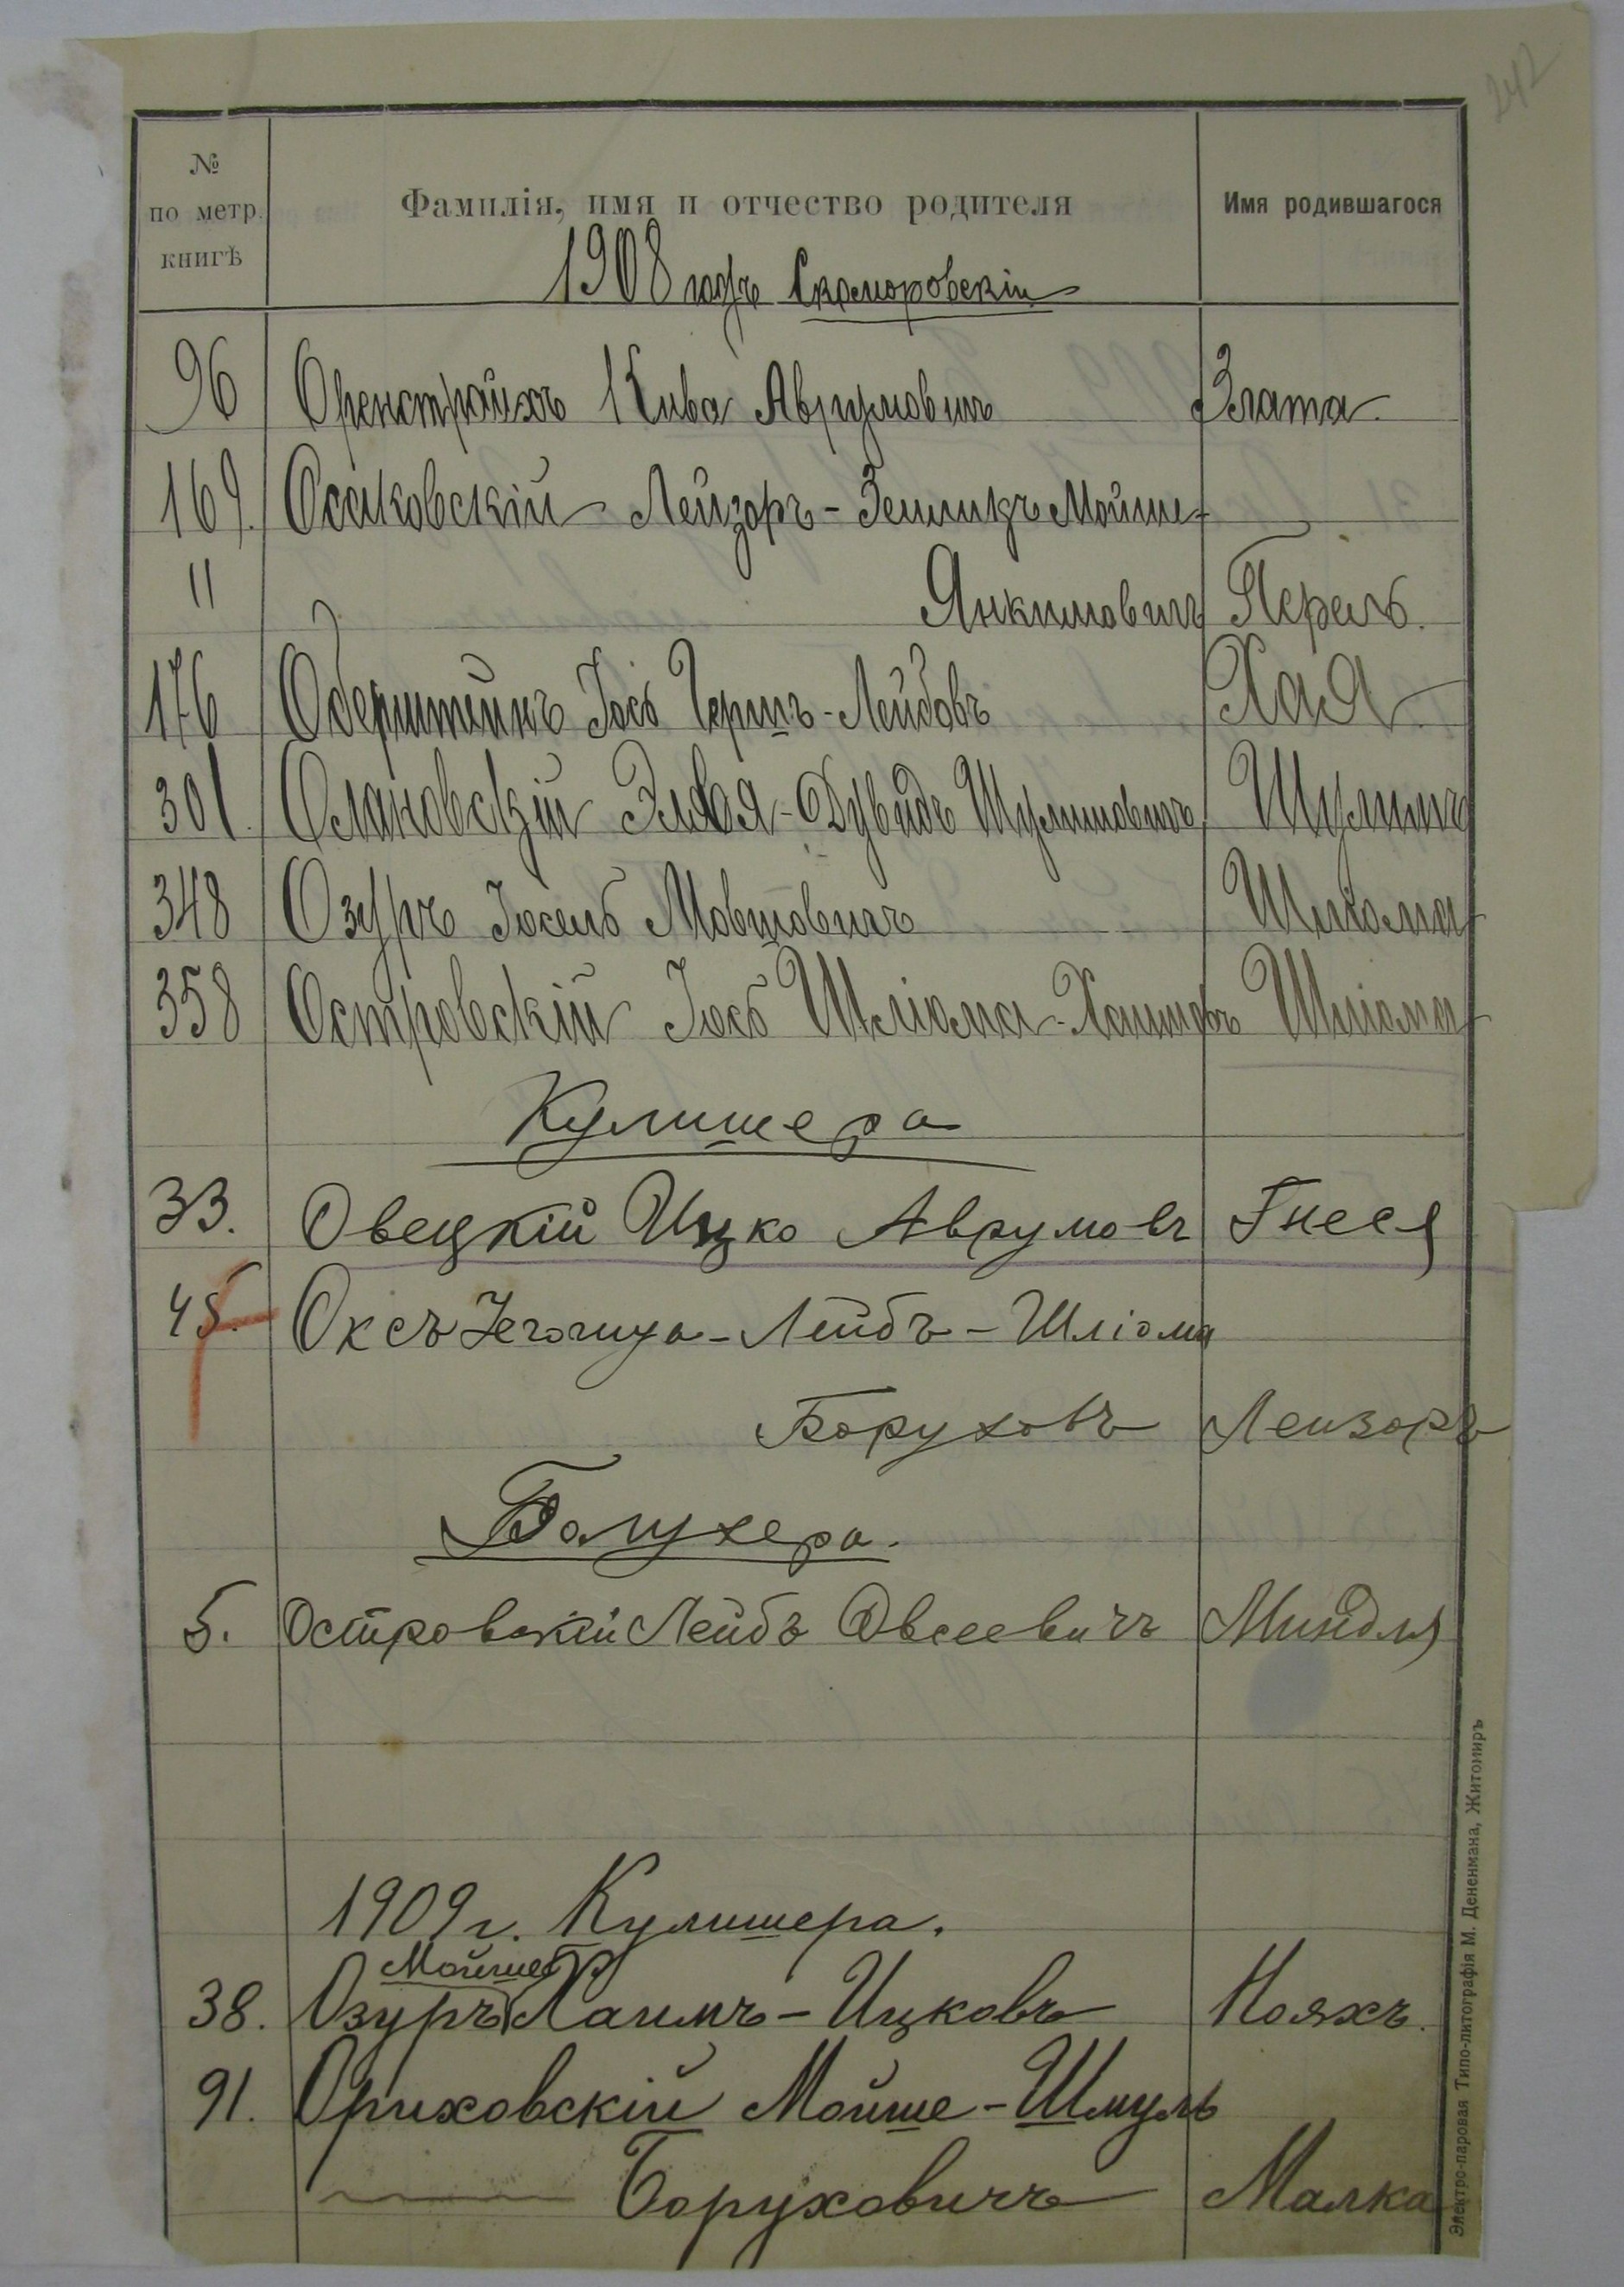 242
№ по метр. книгѣ
Фамилія, имя и отчество родителя
Имя родившагося
1908 годъ Скоморовскій
96 Оренстрайхъ Кива Аврумовичъ Злата.
169. Осаковскій Лейзоръ-Зейликъ Мойше-
" Янкимовичъ Перель.
176 Оберштейнъ Іось Гершъ-Лейбовъ Хая
301. Олановскій Эля Дувидъ Шулимовичъ Шулимъ
348 Озуръ Іосель Мовшовичъ Шліома
358 Островскій Іось Шліома-Хаимовъ Шліома
Кулишера
33. Овецкій Ицко Аврумовъ Гнеся
45. Оксъ Іегошуа-Лейбъ-Шліома
Боруховъ Лейзоръ
Балухера.
5. Островскій Лейбъ Овсеевичъ Миндля
1909 г. Кулишера.
Мойше
38. Озуръ Хаимъ-Ицковъ Нояхъ.
91. Ориховскій Мойше-Шмуль
Боруховичъ Малка
Электро-паровая Типо-литографія М. Дененмана, Житомиръ